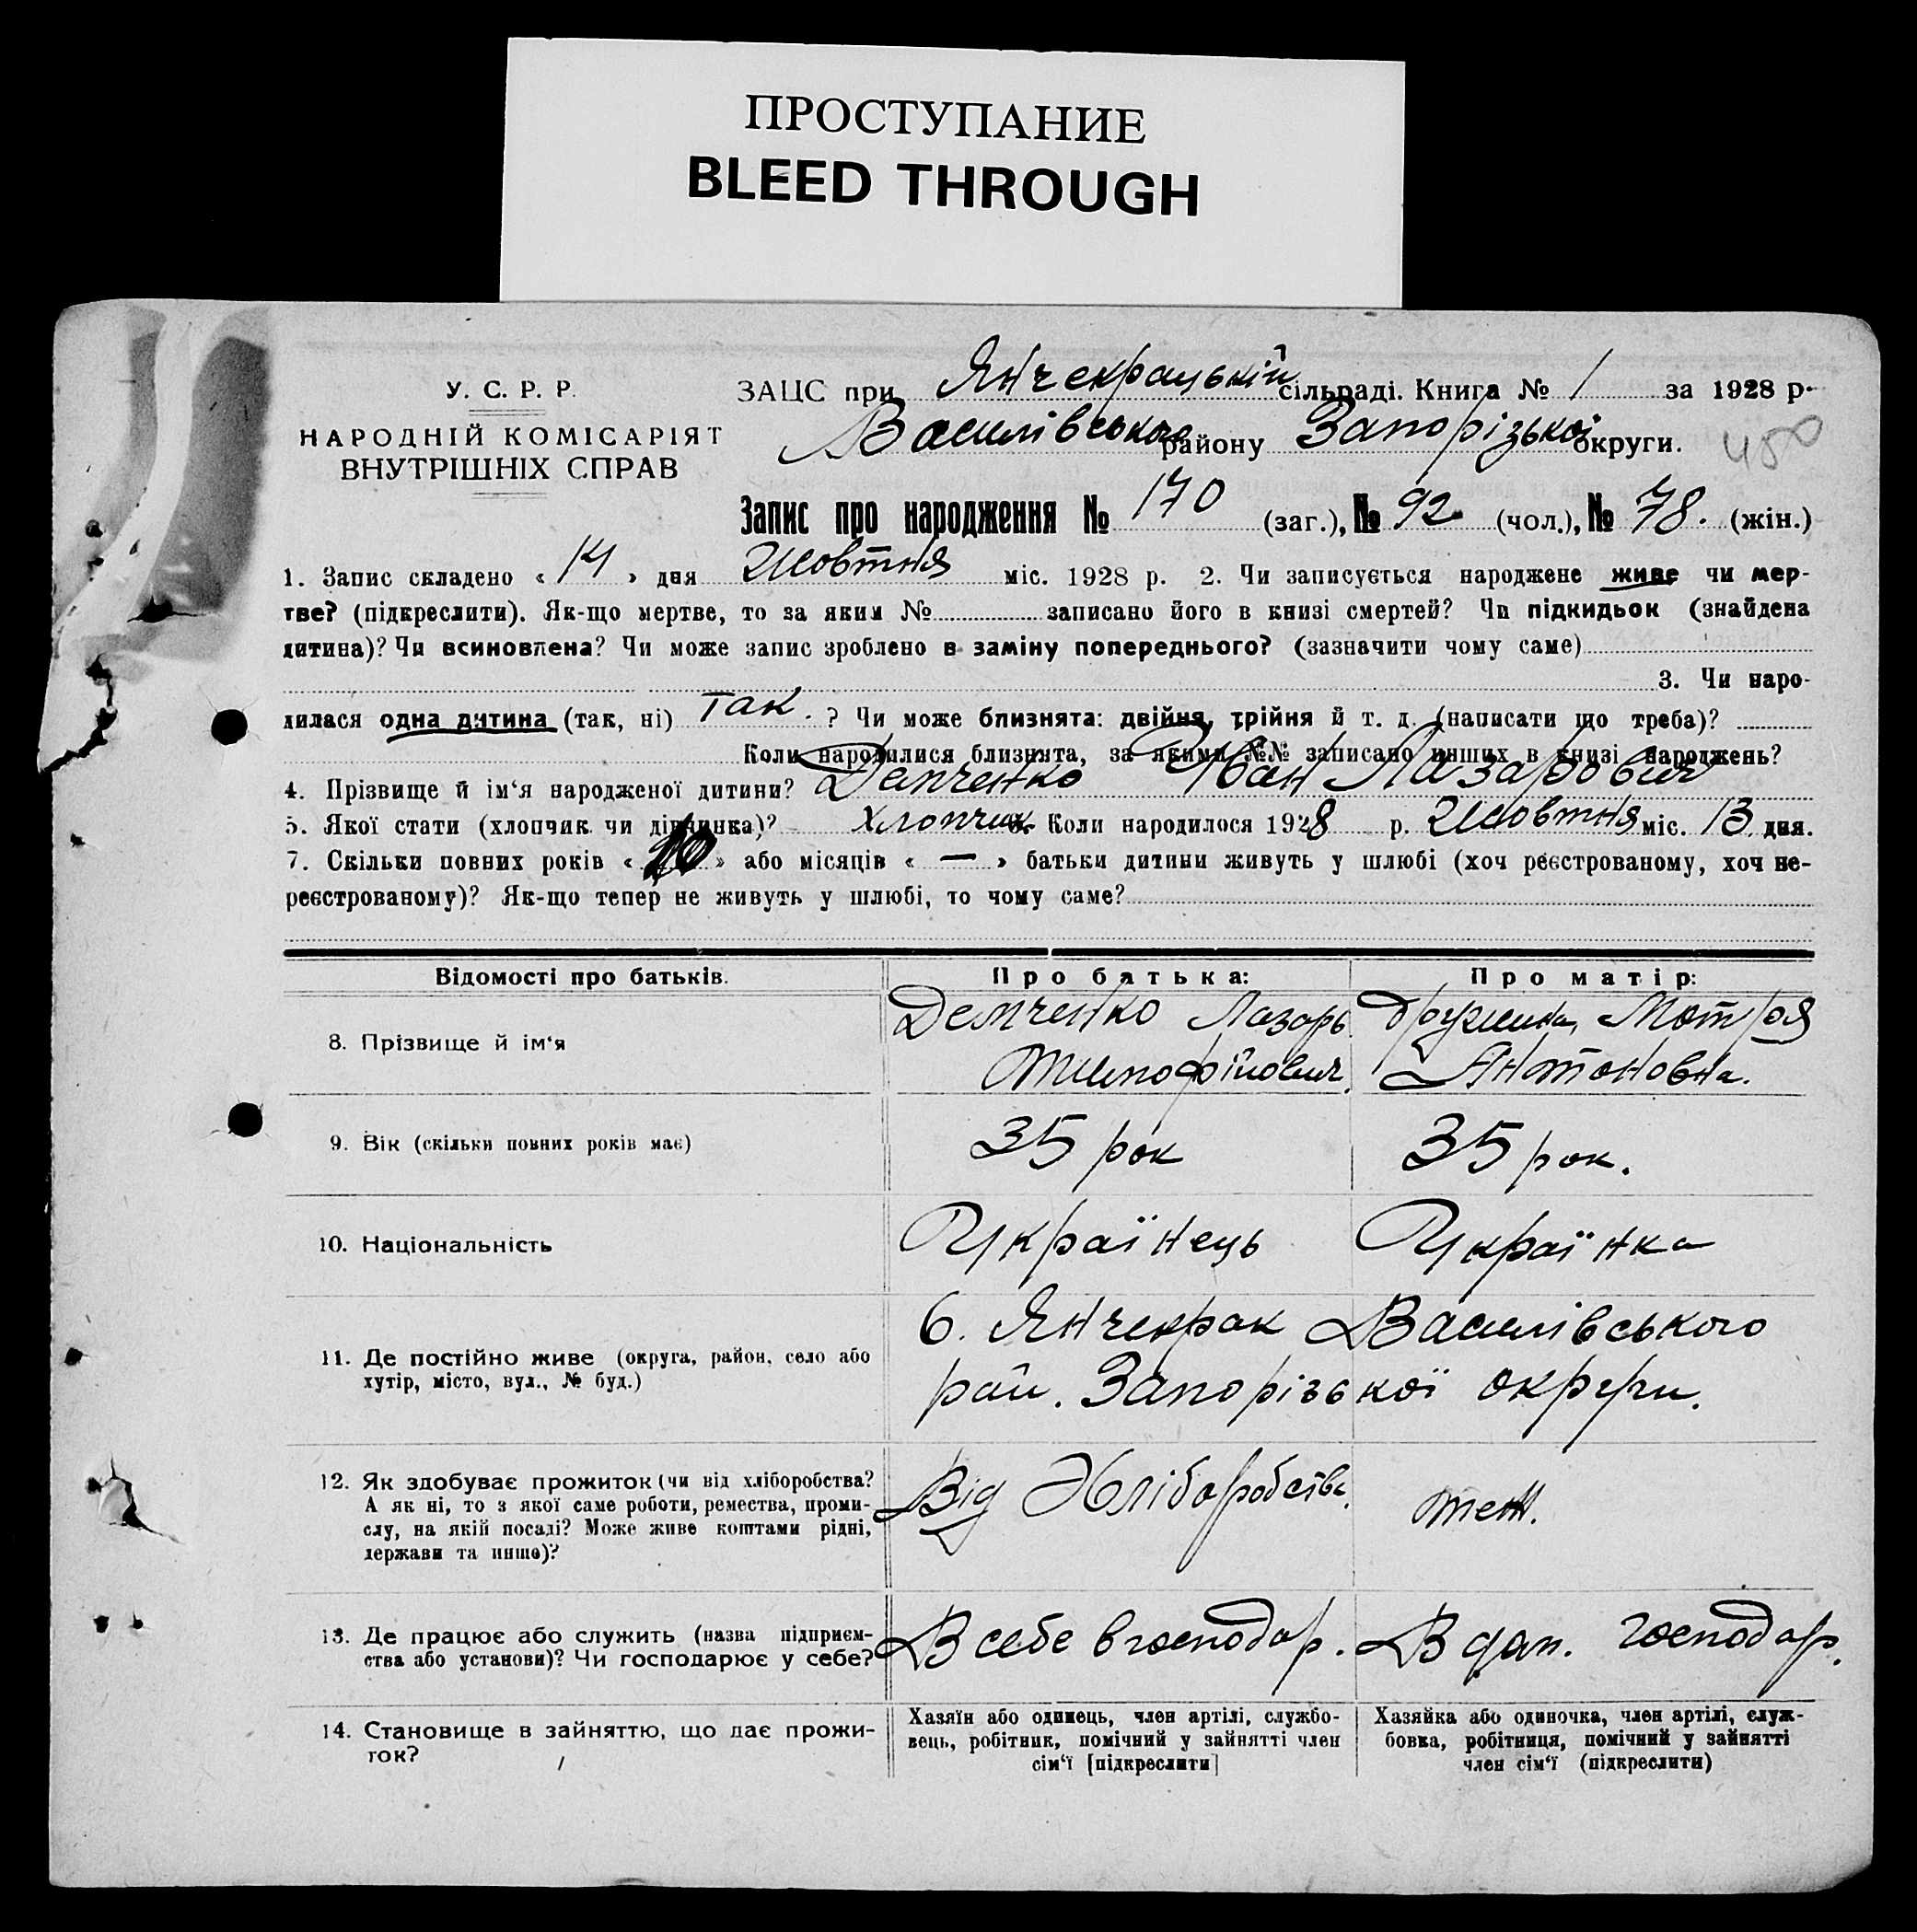 ПРОСТУПАНИЕ
BLEED THROUGH
У. С. Р. Р.
НАРОДНІЙ КОМІСАРІЯТ
ВНУТРІШНІХ СПРАВ
ЗАЦС при Янчекрацькій сільраді. Книга № 1 за 1928 р.
Василівського району Запорізької округи.
450
Запис про народження № 170 (заг.), № 92 (чол.), № 78. (жін.)
1. Запис складено « 14 » дня Жовтня міс. 1928 р. 2. Чи записується народжене живе чи мер-
тве? (підкреслити). Як-що мертве, то за яким № записано його в книзі смертей? Чи підкидьок (знайдена
дитина)? Чи всиновлена? Чи може запис зроблено в заміну попереднього? (зазначити чому саме)
3. Чи наро-
дилася одна дитина (так, ні) Так. ? Чи може близнята: двійня, трійня й т. д. (написати що треба)?
Коли народилися близнята, за якими №№ записано инших в книзі народжень?
4. Прізвище й ім‘я народженої дитини? Демченко Иван Лазарович
5. Якої стати (хлопчик чи дівчинка)? Хлопчик 6. Коли народилося 1928 р. Жовтня міс. 13 дня.
7. Скільки повних років « 10 » або місяців « — » батьки дитини живуть у шлюбі (хоч реєстрованому, хоч не-
реєстрованому)? Як-що тепер не живуть у шлюбі, то чому саме?
Відомості про батьків. Про батька: Про матір:
8. Прізвище й ім‘я
Демченко Лазарь Дружина, Мотря
Тимофійович. Антоновна.
9. Вік (скільки повних років має) 35 рок 35 рок.
10. Національність Українець Українка
11. Де постійно живе (округа, район, село або
хутір, місто, вул., № буд.)
с. Янчекрак Василівського
рай. Запорізької округи.
12. Як здобуває прожиток (чи від хліборобства?
А як ні, то з якої саме роботи, ремества, проми-
слу, на якій посаді? Може живе коштами рідні,
держави та инше)?
Від Хліборобства. теж.
13. Де працює або служить (назва підприєм-
ства або установи)? Чи господарює у себе?
В себе в господар. В дом. господар.
14. Становище в зайняттю, що дає прожи-
ток?
Хазяїн або одинець, член артілі, службо-
вець, робітник, помічний у зайнятті член
сім‘ї [підкреслити]
Хазяйка або одиночка, член артілі, служ-
бовка, робітниця, помічний у зайнятті
член сім‘ї (підкреслити)